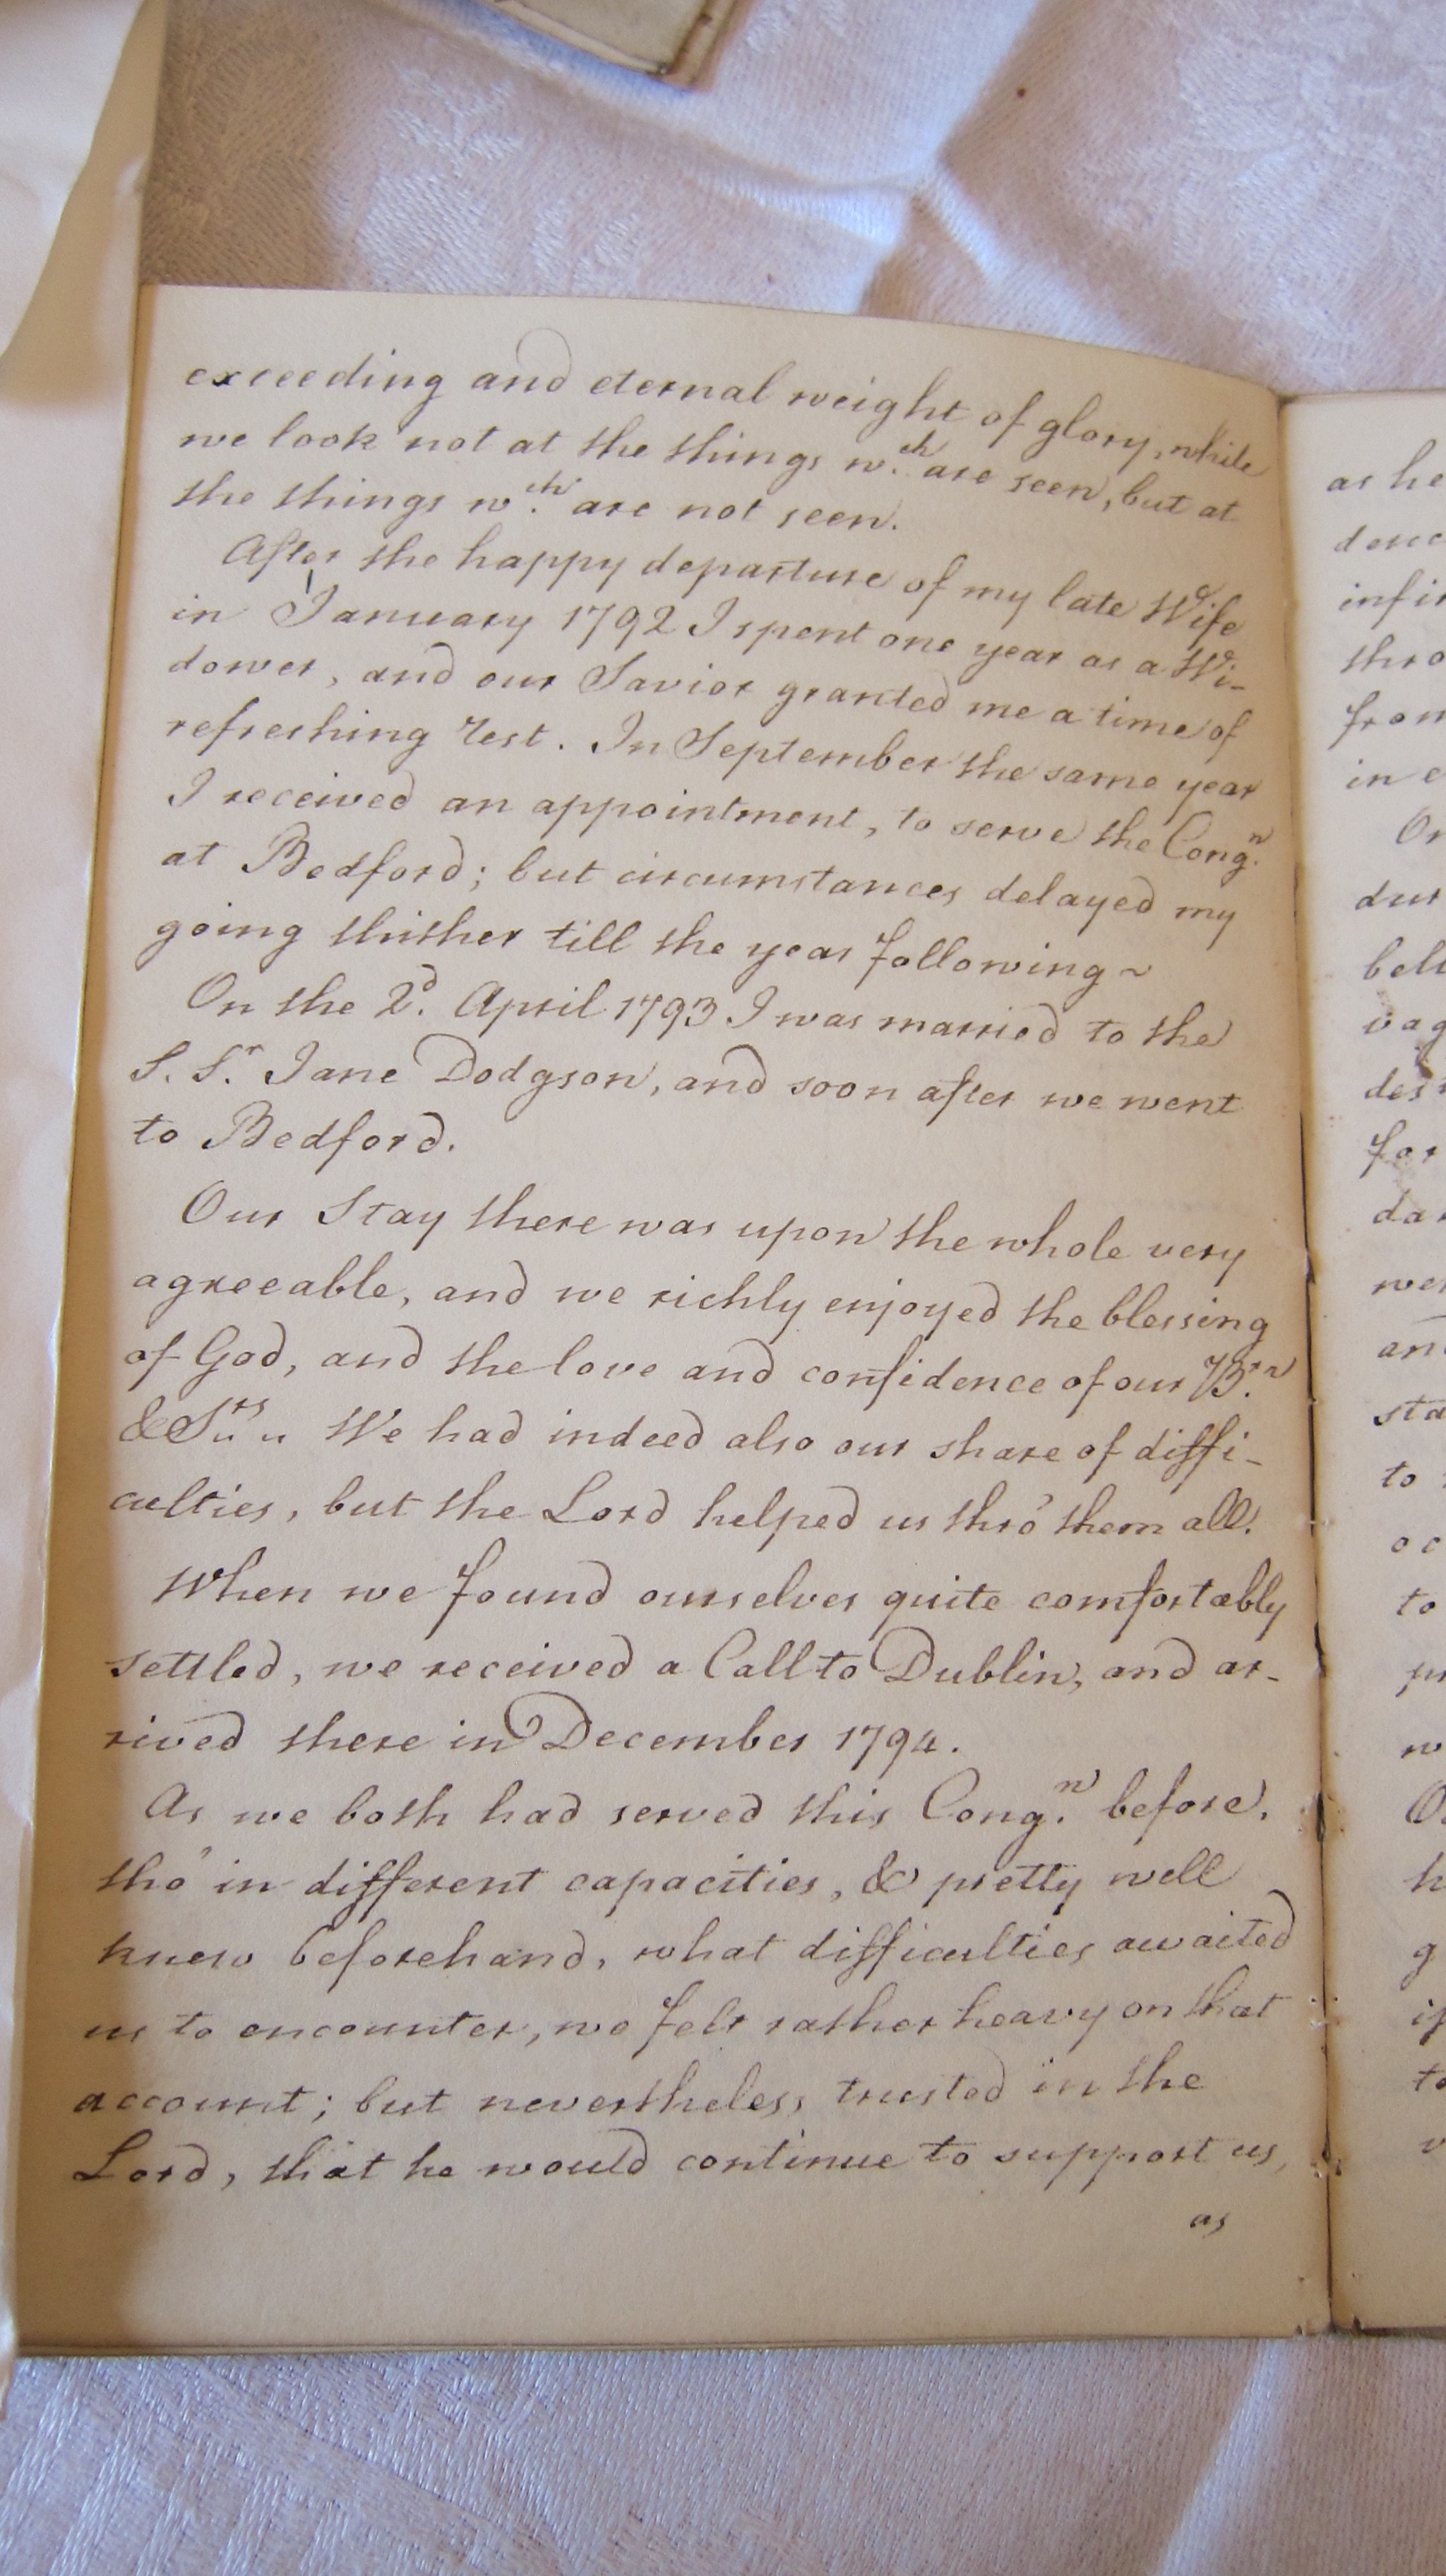 exceeding and eternal weight of glory, while
we look not at the things wch. are seen, but at
the things wch. are not seen.
After the happy departure of my late Wife
in January 1792 I spent one year as a Wi-
dower, and our Savior granted me a time of
refreshing rest. In September the same year
I received an appointment, to serve the Congn.
at Bedford; but circumstances delayed my
going thither till the year following ~
On the 2d. April 1793 I was married to the
S. Sr. Jane Dodgson, and soon after we went
to Bedford.
Our Stay there was upon the whole very
agreeable, and we richly enjoyed the blessing
of God, and the love and confidence of our Brn.
& Srs.. We had indeed also our share of diffi-
culties, but the Lord helped us thro' them all.
When we found ourselves quite comfortably
settled, we received a Call to Dublin, and ar-
rived there in December 1794.
As we both had served this Congn. before,
tho' in different capacities, & pretty well
knew beforehand, what difficulties awaited
us to encounter, we felt rather heavy on that
account; but nevertheless trusted in the
Lord, that he would continue to support us,
as
as he
infir
thro
from
in e
dur
for
to
to